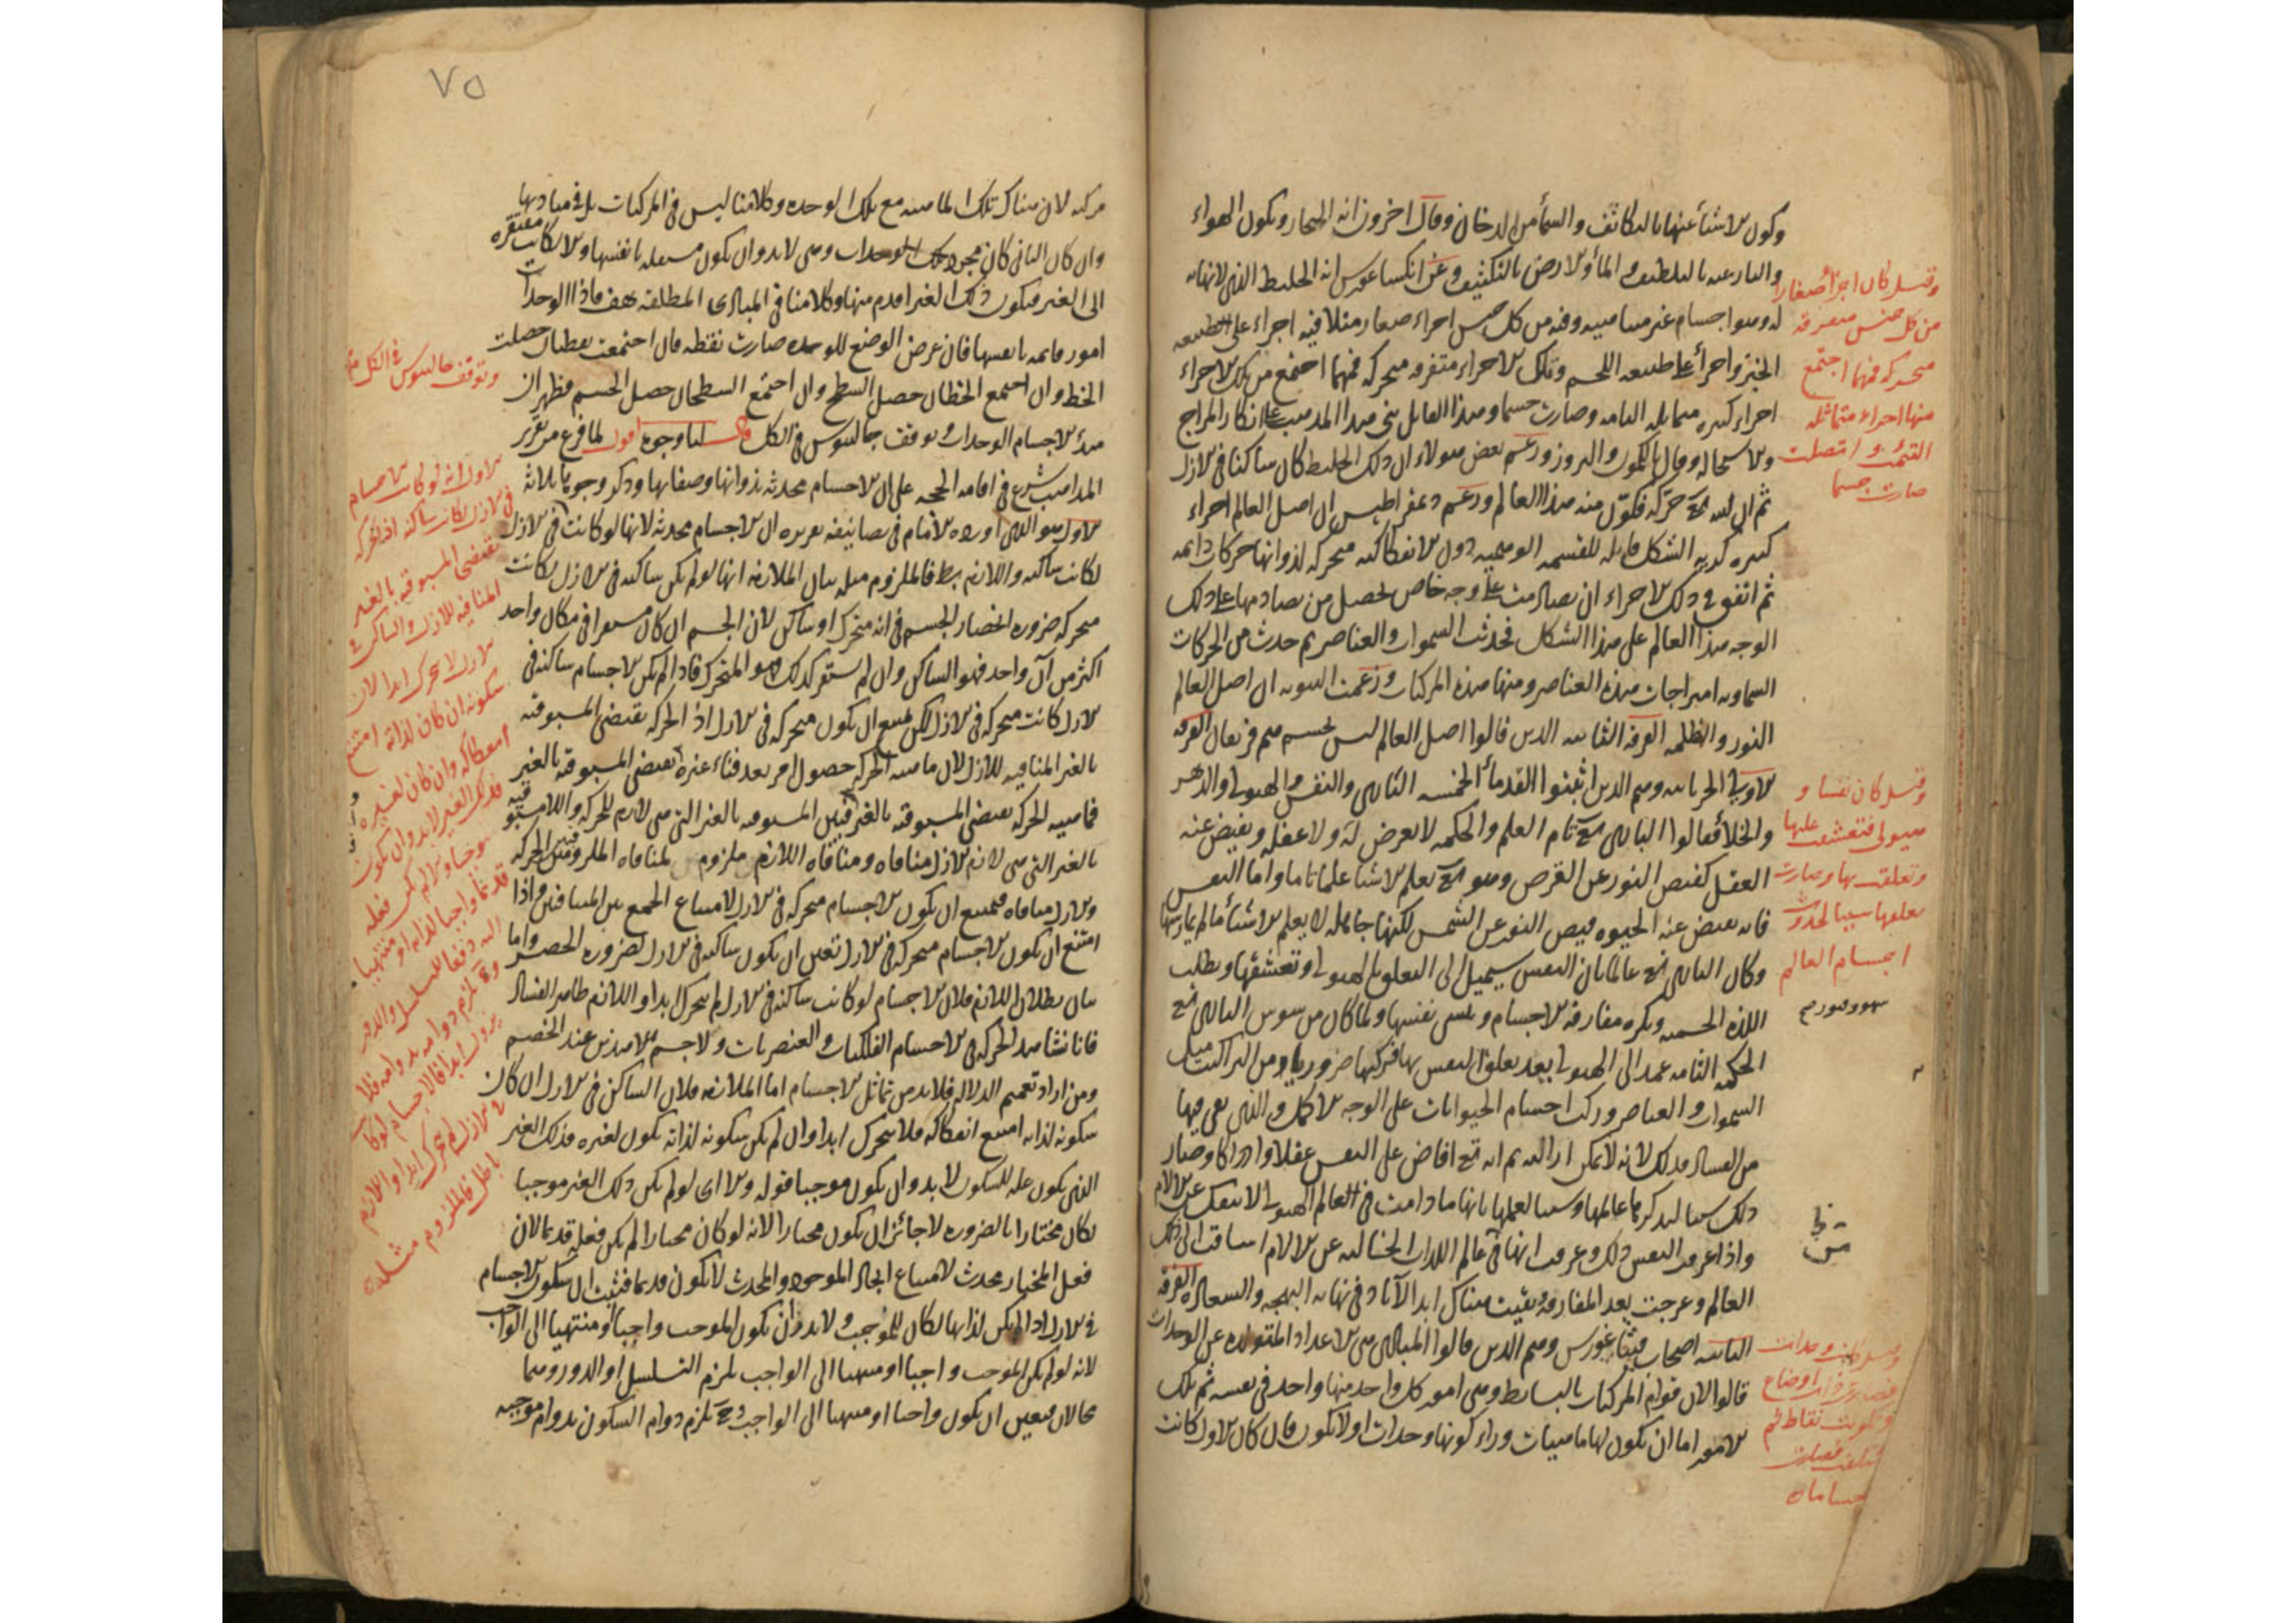 وتكون الاشيأ عنها بالتكاثف والسمأ من الدخان وقال اخرون انه البخار وتكون الهواء
والنار عنه بالتلطيف والمأ والارض بالتكثيف وعن انكساغورس انه الخليط الذى لا نهاية
له وهو اجسام غير متناهية وفيه من كل جنس اجزاء صغار مثلا فيه اجزاء على طبيعة
الخبز واجزأ على طبيعة اللحم وتلك الاجزاء متفرقة متحركة فمهما اجتمع من تلك الاجزاء
اجزاء كثيرة متماثلة التامت وصارت جسما وهذا القايل بنى هذا المذهب على انكار المزاج
والاستحالة وقال بالكمون والبروز وزعم بعض هولاء ان ذلك الخليط كان ساكنا فى الازل
ثم ان الله تع حركه فكون منه هذا العالم وزعم دمقراطيس ان اصل العالم اجزاء
كثيرة كرية الشكل قابلة للقسمة الوهمية دون الانفكاكية متحركة لذواتها حركات دائمة
ثم اتفق فى تلك الاجزاء ان تصادمت على وجه خاص فحصل من تصادمها على ذلك
الوجه هذا العالم على هذا الشكل فحدثت السموات والعناصر ثم حدث من الحركات
السماوية امتزاجات هذه العناصر ومنها هذه المركبات وزعمت الثنوية ان اصل العالم
النور والظلمة الفرقة الثانية الذين قالوا اصل العالم ليس بجسم وهم فريقان الفرقة
الاولى الحرنانية وهم الذين اثبتوا القدمأ الخمسة البارى والنفس والهيولى والدهر
والخلأ فقالوا البارى تع تام العلم والحكمة لا يعرض له ولا غفلة ويفيض عنه
العقل كفيض النور عن القرص وهو تع يعلم الاشيا علما تاما واما النفس
فانه يفيض عنه الحيوة فيض النور عن الشمس لكنها جاهلة لا يعلم الاشيأ مالم يمارسها
وكان البارى تع عالما بان النفس سيميل الى التعلق بالهيولى وتعشقها ويطلب
اللذة الجسمية ويكره مفارقة الاجسام وينسى نفسها ولما كان من سوس البارى تع
الحكمة التامة عمد الى الهيولى بعد تعلق النفس بها فركبها ضروبا من التراكيب مثل
السموات والعناصر وركب اجسام الحيوانات على الوجه الاكمل والذى بقى فيها
من الفساد فذلك لانه لا يمكن ازالته ثم انه تع افاض على النفس عقلا وادراكا وصار
ذلك سببا لتذكرها عالمها وسببا لعلمها بانها ما دامت فى العالم الهيولى لا ينفك عن الالام
واذا عرفت النفس ذلك وعرفت انها فى عالم اللذات الخالية عن الالام اشتاقت الى ذلك
العالم وعرجت بعد المفارقة وبقيت هناك ابد الآباد فى نهاية البهجة والسعادة الفرقة
الثانية اصحاب فيثاغورس وهم الذين قالوا المبادى هى الاعداد المتولدة عن الوحدات
قالوا لان قوام المركبات بالبسايط وهى امور كل واحد منها واحد فى نفسه ثم تلك
الامور اما ان يكون لها ماهيات وراء كونها وحدات اولا يكون فان كان الاول كانت
وقيل كان اجزأ صغارا
من كل جنس متفرقة
متحركة فمهما اجتمع
منها اجزاء متماثلة
التئمت و اتصلت
صارت جسما
وقيل كان نفسا و
هيولى فتعشقت عليها
وتعلقت بها وصارت
تعلقها سببا لحدوث
اجسام العالم
وقيل كانت وحدات
فصارت ذات اوضاع
وتكونت نقاط ثم
فصارت
٧٥
مركبة لان هناك تلك الماهية مع تلك الوحدة وكلامنا ليس فى المركبات بل فى مباديها
وان كان الثانى كان مجرد تلك الوحدات وهى لابد وان يكون مستقلة بانفسها والا لكانت مفتقرة
الى الغير فيكون ذلك الغير اقدم منها وكلامنا فى المبادى المطلقة هف فاذا الوحدات
امور قائمة بانفسها فان عرض الوضع للوحدة صارت نقطة فان اجتمعت نقطتان حصلت
الخط وان اجتمع الخطان حصل السطح وان اجتمع السطحان حصل الجسم فظهر ان
مبدأ الاجسام الوحدات وتوقف جالينوس فى الكل قال لنا وجوه اقول لما فرغ من تقرير
المذاهب شرع فى اقامة الحجة على ان الاجسام محدثة بذواتها وصفاتها وذكر وجوها ثلاثة
الاول هو الذى اورده الامام فى تصانيفه تقريره ان الاجسام محدثة لانها لو كانت فى الازل
لكانت ساكنة واللازم بط فالملزوم مثله بيان الملازمة انها لو لم تكن ساكنة فى الازل لكانت
متحركة ضرورة انحصار الجسم فى انه متحرك او ساكن لان الجسم ان كان مستقرا فى مكان واحد
اكثر من آن واحد فهو الساكن وان لم يستقر كذلك فهو المتحرك فاذا لم يكن الاجسام ساكنة فى
الازل كانت متحركة فى الازل لكن يمتنع ان يكون متحركة فى الازل اذ الحركة يقتضى المسبوقية
بالغير المنافية للازل لان ماهية الحركة حصول امر بعد فناء غيره فيقتضى المسبوقية بالغير
فماهية الحركة يقتضى المسبوقية بالغير فبين المسبوقية بالغير التى هى لازم للحركة واللامسبوقية
بالغير التى هى لازم الازل منافاة ومنافاة اللازم ملزوم لمنافاة الملزوم فبين الحركة
والازل منافاة فيمتنع ان يكون الاجسام متحركة فى الازل لامتناع الجمع بين المتنافيين واذا
امتنع ان يكون الاجسام متحركة فى الازل تعين ان يكون ساكنة فى الازل لضرورة الحصر واما
بيان بطلان اللازم فلان الاجسام لو كانت ساكنة فى الازل لم يتحرك ابدا واللازم ظاهر الفساد
فانا نشاهد الحركة فى الاجسام الفلكيات والعنصريات ولا جسم الا هذين عند الخصم
ومن اراد تعميم الدلالة فلابد من تماثل الاجسام اما الملازمة فلان الساكن فى الازل ان كان
سكونه لذاته امتنع انفكاكه فلا يتحرك ابدا وان لم يكن سكونه لذاته يكون لغيره فذلك الغير
الذى يكون علة للسكون لابد وان يكون موجبا قوله والا اى لو لم يكن ذلك الغير موجبا
لكان مختارا بالضرورة لا جائز ان يكون مختارا لانه لو كان مختارا لم يكن فعله قديما لان
فعل المختار محدث لامتناع ايجاد الموجود والمحدث لا يكون قديما فثبت ان سكون الاجسام
فى الازل اذا لم يكن لذاتها لكان للموجب ولابد وان يكون الموجب واجبا او منتهيا الى الواجب
لانه لو لم يكن الموجب واجبا او منتهيا الى الواجب يلزم التسلسل او الدور وهما
محالان فتعين ان يكون واجبا او منتهيا الى الواجب وح يلزم دوام السكون بدوام موجبه
وتوقف جالينوس فى الكل
الاول انه لو كانت الاجسام
فى الازل لكانت ساكنة اذ الحركة
تقتضى المسبوقية بالغير
المنافية للازل والساكن فى
الازل لا يتحرك ابدا لان
سكونه ان كان لذاته امتنع
انفكاكه وان كان لغيره
فذلك الغير لابد وان يكون
موجبا والا لم يكن فعله
قديما واجبا لذاته او منتهيا
اليه دفعا للتسلسل والدور
وح يلزم دوامه بدوامه فلا
يزول ابدا فالاجسام لو كانت
فى الازل لم تتحرك ابدا واللازم
باطل فالملزوم مثله